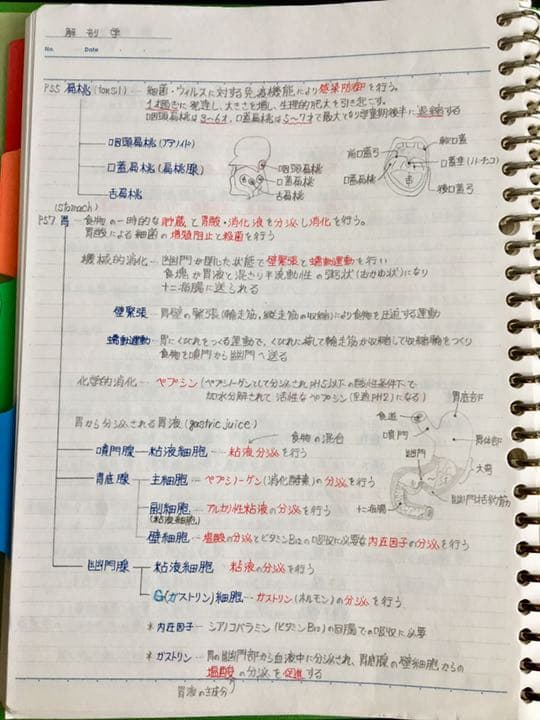 解剖学
No.
Date
P55 扁桃(tonsil) ─ 細菌・ウィルスに対する免疫機能により感染防御を行う。
1才頃さに発達し、大きさを増し、生理的肥大を引き起こす。
咽頭扁桃は3~6才、口蓋扁桃は5~7才で最大となり学童期後半に退縮する
咽頭扁桃(アデノイド)
口蓋扁桃(扁桃腺)
舌扁桃
咽頭扁桃
口蓋扁桃
舌扁桃
前口蓋弓
口蓋扁桃
口蓋垂
後口蓋弓
(stomach)
P57 胃 ─ 食物の一時的な貯蔵と胃酸・消化液を分泌し消化を行う。
胃酸による細菌の増殖阻止と殺菌を行う
機械的消化 ─ 幽門が閉じた状態で壁緊張と蠕動運動を行い
食塊が胃液と混ざり半流動性の粥状(おかゆ状)になり
十二指腸に送られる
壁緊張 ─ 胃壁の緊張(輪走筋,縦走筋の収縮)により食物を圧迫する運動
蠕動運動 ─ 胃にくびれをつくる運動で、くびれに続いて輪走筋が収縮して収縮輪をつくり
食物を噴門から幽門へ送る
化学的消化 ─ ペプシン(ペプシノーゲンとして分泌されpH5以下の酸性条件下で
加水分解されて活性なペプシン(至適pH2)になる)
胃から分泌される胃液(gastric juice)
食物の混合
噴門腺 ─ 粘液細胞 … 粘液分泌を行う
胃底腺 ─ 主細胞 … ペプシノーゲン(消化酵素)の分泌を行う
副細胞 … アルカリ性粘液の分泌を行う
(粘液細胞)
壁細胞 … 塩酸の分泌とビタミンB12の吸収に必要な内因子の分泌を行う
幽門腺 ─ 粘液細胞 粘液の分泌を行う
G(ガストリン)細胞 … ガストリン(ホルモン)の分泌を行う
食道
噴門
幽門
十二指腸
胃底部
胃体部
大弯
幽門括約筋
* 内因子 … シアノコバラミン(ビタミンB12)の回腸での吸収に必要
* ガストリン … 胃の幽門部から血液中に分泌され、胃底腺の壁細胞からの
塩酸の分泌を促進する
胃液の主成分